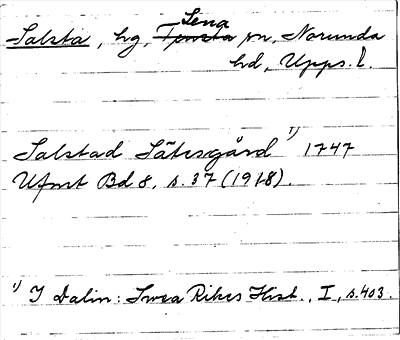 Salsta, hg, Lena Tensta sn, Norunda
hd, Upps. l.
Salstad Sätesgård 1) 1747
Ufmt Bd 8, s. 37 (1918).
1) I Dalin: Svea Rikes Hist., I, s. 403.